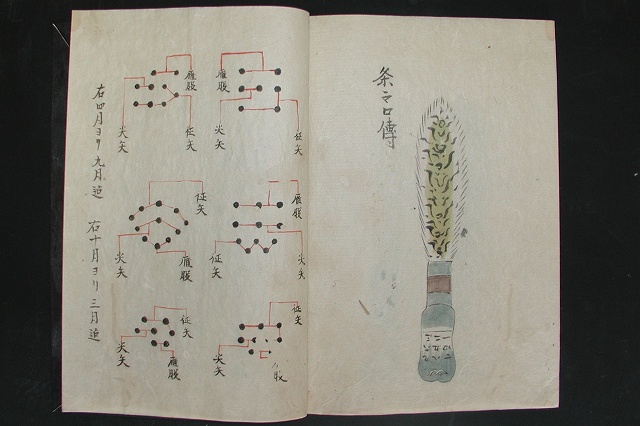 条々口傳
雁股
征矢
尖矢
雁股
征矢
尖矢
雁股
尖矢
征矢
征矢
雁股
尖矢
征矢
股
尖矢
征矢
雁股
尖矢
右四月ヨリ九月迠
右十月ヨリ三月迠